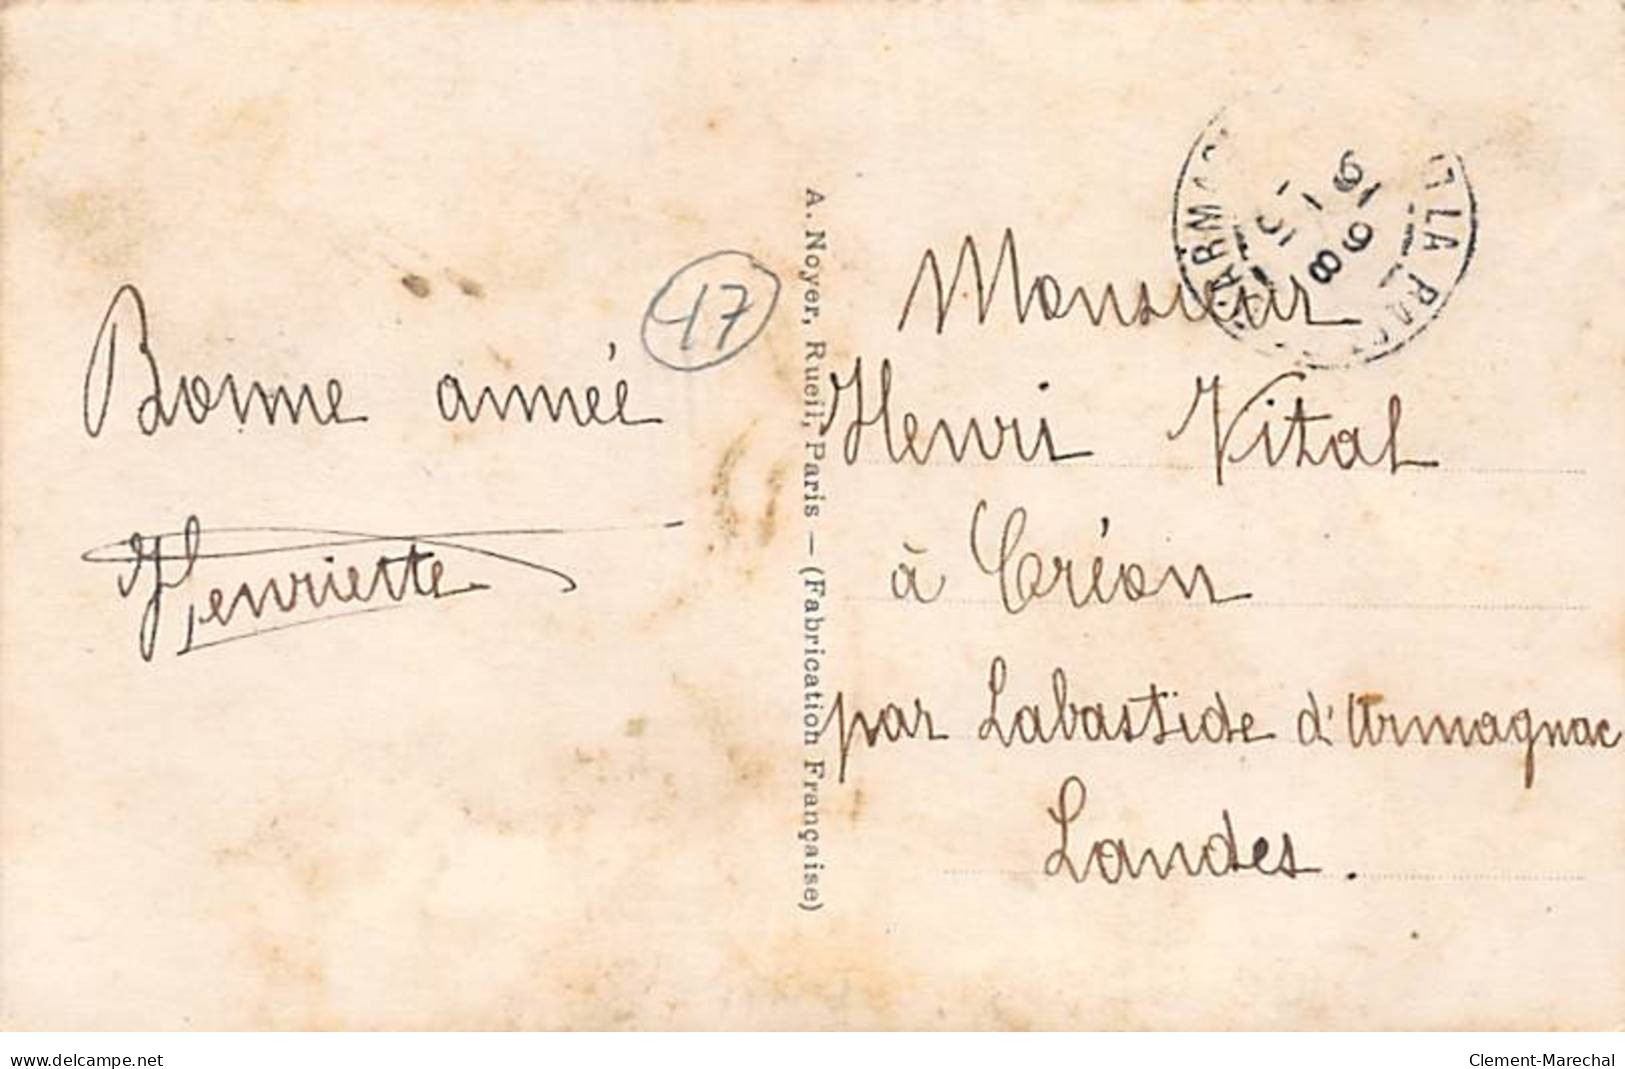 Bonne année
Henriette
17
A. Noyer, Rueil, Paris — (Fabrication Française)
Monsieur
Henri Vital
à Créon
par Labastide d'Armagnac
Landes.
delcampe.net
Clement-Marechal